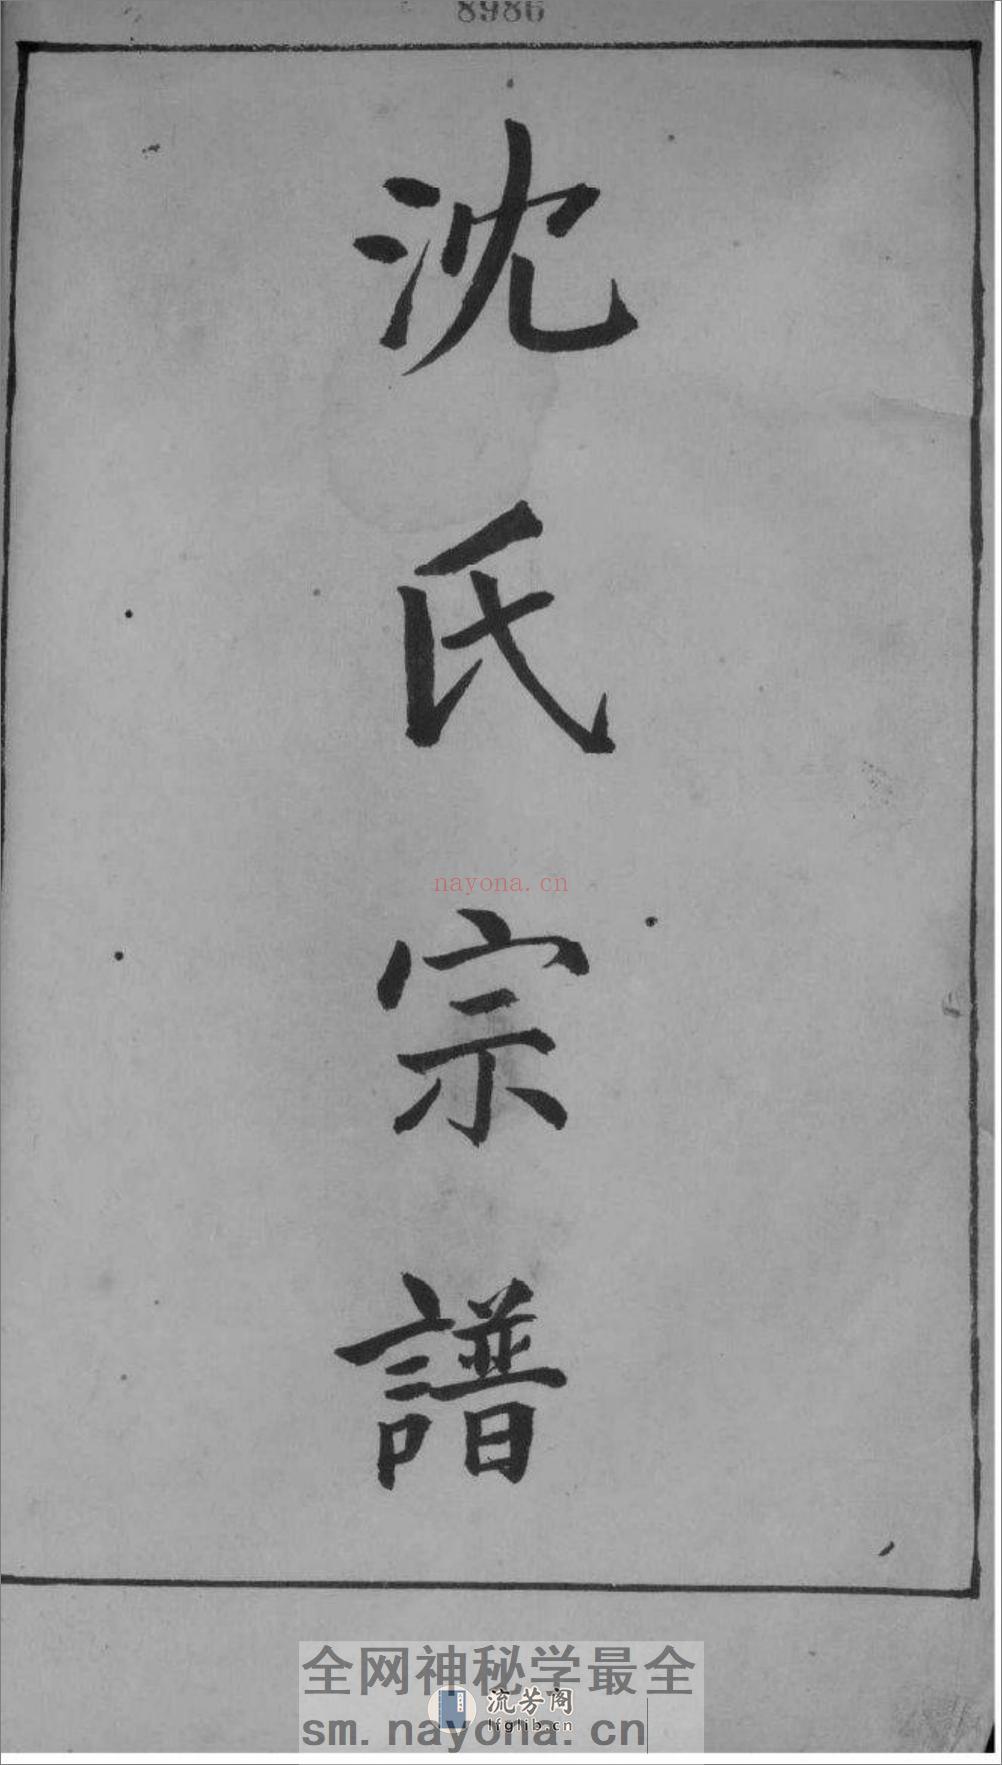 8986
沈氏宗譜
nayona.cn
全网神秘学最全
流芳阁
lfglib.cn
sm.nayona.cn